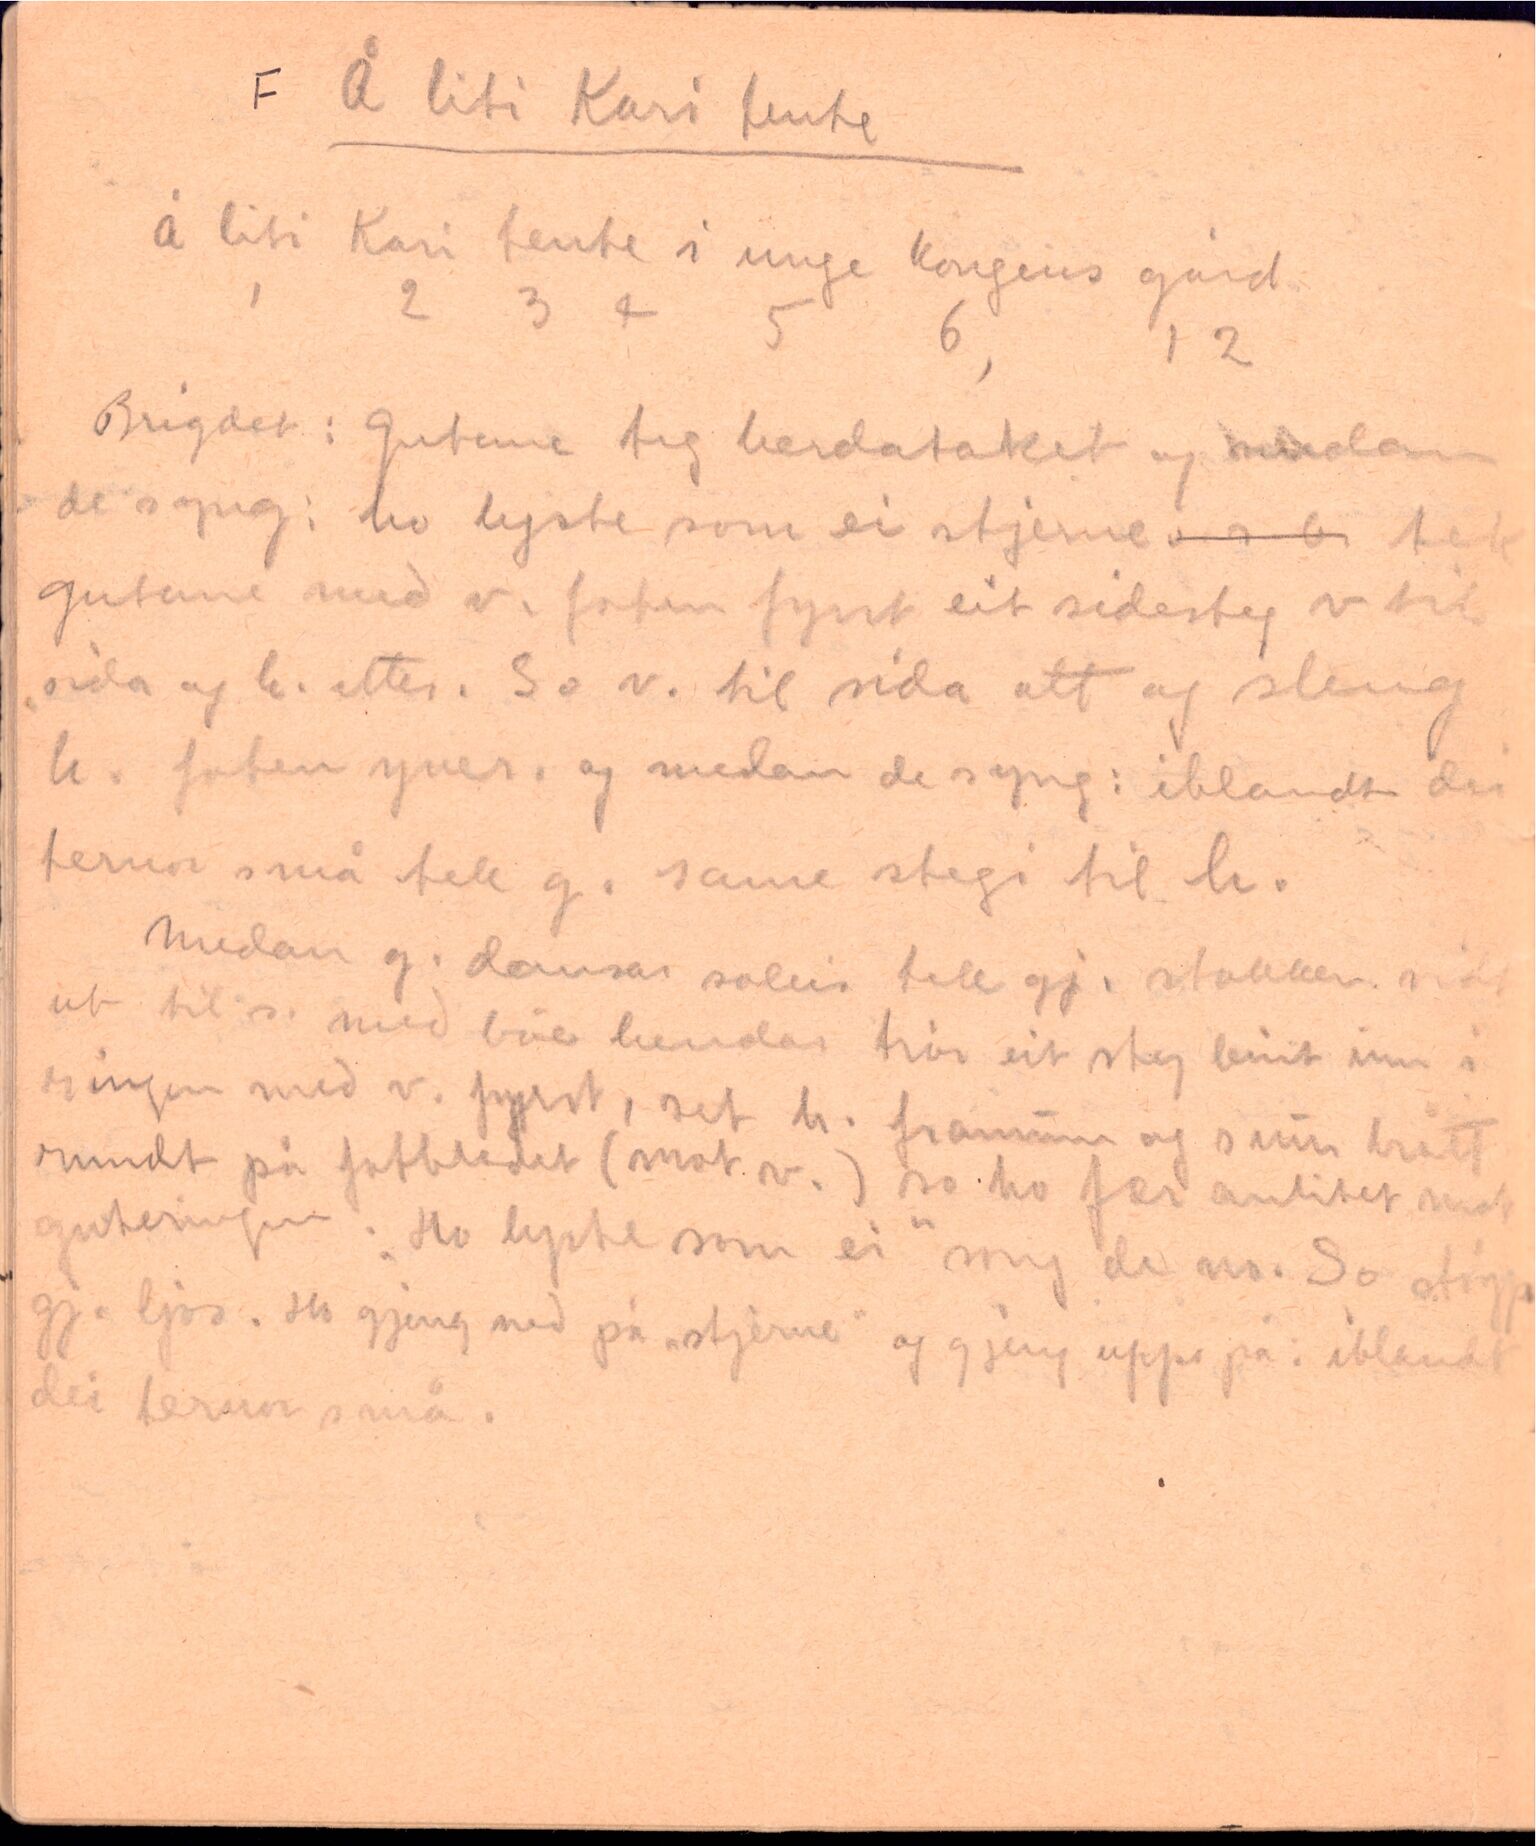 F Å liti Kari tente
Å liti Kari tente i unge kongens gård.
1 2 3 4 5 6, 1 2
Brigdet: Gutane teg herdataket og medan
de syng: ho lyste som ei stjerne tek
gutane med v. foten fyrst eit sidesteg v til
sida og h. etter. So v. til sida att og sleng
h. foten yver. og medan de syng: iblandt dei
ternor små tek g. same stegi til h.
Medan g. dansar soleis tek gj. stakken
ut til s. med båe hendar trør eit steg beint inn i
ringen med v. fyrst, set h. framum og snur brått
rundt på fotbledet (mot v.) so ho fær anlitet mot
guteringen. "Ho lyste som ei" song de no. So støyp
gj. ljos. Ho gjeng ned på "stjerne" og gjeng upp på: iblandt
dei ternor små.